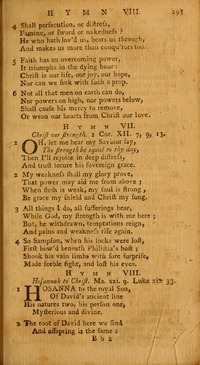 HYMN VIII. 293
4 Shall persecution, or distress,
Famine, or sword or nakedness?
He who hath lov'd us, bears us through,
And makes us more than conqu'rors too.
5 Faith has an overcoming power,
It triumphs in the dying hour:
Christ is our life, our joy, our hope,
Nor can we sink with such a prop.
6 Not all that men on earth can do,
Nor powers on high, nor powers below,
Shall cause his mercy to remove,
Or wean our hearts from Christ our love.
HYMN VII.
Christ our strength. 2 Cor. XII. 7, 9, 13.
1 OH, let me hear my Saviour say,
Thy strength be equal to thy day,
Then I'll rejoice in deep distress,
And trust secure his sovereign grace.
2 My weakness shall my glory prove,
That power may aid me from above;
When flesh is weak, my soul is strong,
Be grace my shield and Christ my song.
3 All things I do, all sufferings bear,
While God, my strength is with me here;
But, he withdrawn, temptations reign,
And pains and weakness rise again.
4 So Sampson, when his locks were lost,
First bow'd beneath Philistia's host;
Shook his vain limbs with sore surprise,
Made feeble fight, and lost his eyes.
HYMN VIII.
Hosannah to Christ. Ma. xxi. 9. Luke 33.
1 HOSANNA to the royal Son,
Of David's ancient line
His natures two, his person one,
Mysterious and divine.
2 The root of David here we find
And offspring is the same
B b 2